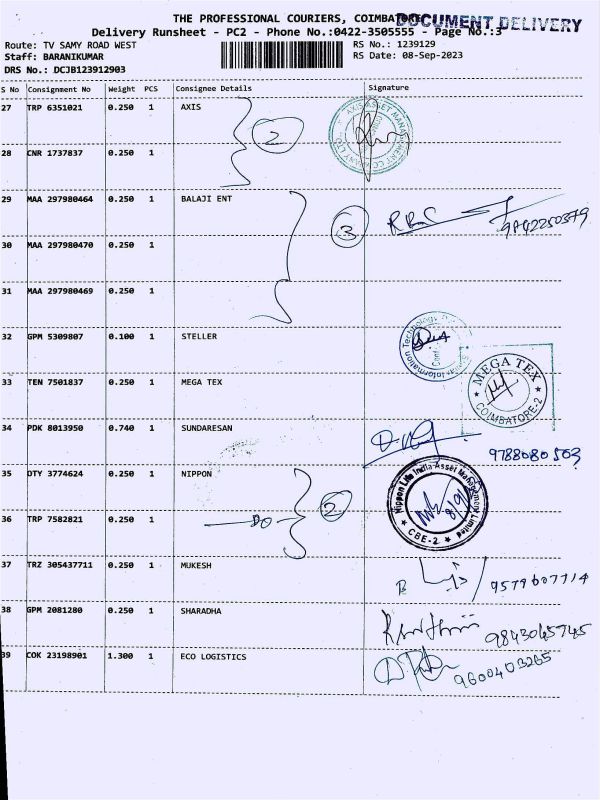 THE PROFESSIONAL COURIERS, COIMBATORE
DOCUMENT DELIVERY
Delivery Runsheet - PC2 - Phone No.:0422-3505555 - Page No.:3
Route: TV SAMY ROAD WEST
RS No.: 1239129
Staff: BARANIKUMAR
RS Date: 08-Sep-2023
DRS No.: DCJB123912903
S No Consignment No Weight PCS Consignee Details Signature
27 TRP 6351021 0.250 1 AXIS
2
AXIS ASSET MANAGEMENT COMPANY LTD
28 CNR 1737837 0.250 1
29 MAA 297980464 0.250 1 BALAJI ENT
3
9842250379
30 MAA 297980470 0.250 1
31 MAA 297980469 0.250 1
32 GPM 5309807 0.100 1 STELLER
33 TEN 7501837 0.250 1 MEGA TEX
MEGA TEX
COIMBATORE-2
34 PDK 8013950 0.740 1 SUNDARESAN
9788080503
35 DTY 3774624 0.250 1 NIPPON
2
Nippon Life India Asset Management Limited
CBE-2
36 TRP 7582821 0.250 1
DO
37 TRZ 305437711 0.250 1 MUKESH
9579607714
38 GPM 2081280 0.250 1 SHARADHA
9843045745
39 COK 23198901 1.300 1 ECO LOGISTICS
9600403265